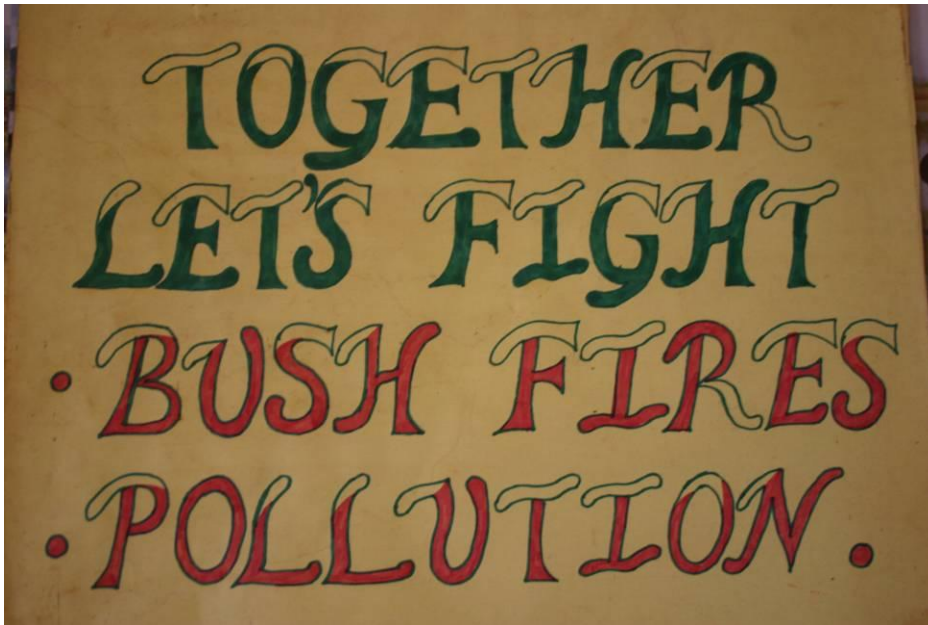 TOGETHER
LET'S FIGHT
• BUSH FIRES
• POLLUTION •